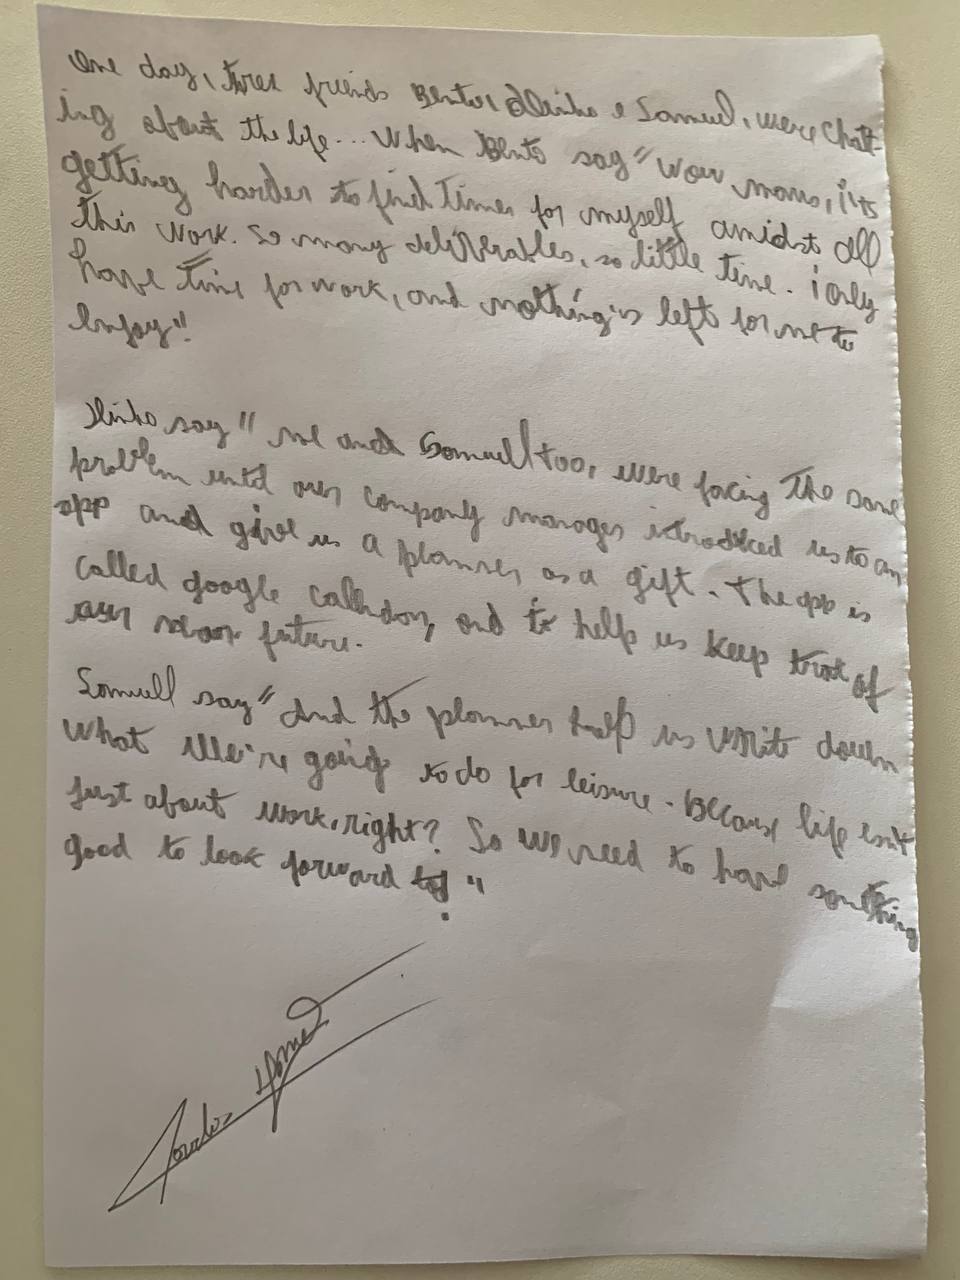 One day, three friends Bento, Ilinho e Samuel, were chatt-
ing about the life... When Bento say "Wow mano, it's
getting harder to find Times for myself amidst all
This Work. So many deliverables, so little time. i only
have Time for work, and nothing is left for me to
Enjoy"!
Ilinho say " me and Samuel too, were facing The same
problem until our company manager introduced us to an
app and give us a planner, as a gift. The app is
called google calendar, and to help us keep track of
our future.
Samuell say " And the planner help us write down
what we're going to do for leisure. Because life isn't
Just about work, right? So we need to have something
good to look forward to "